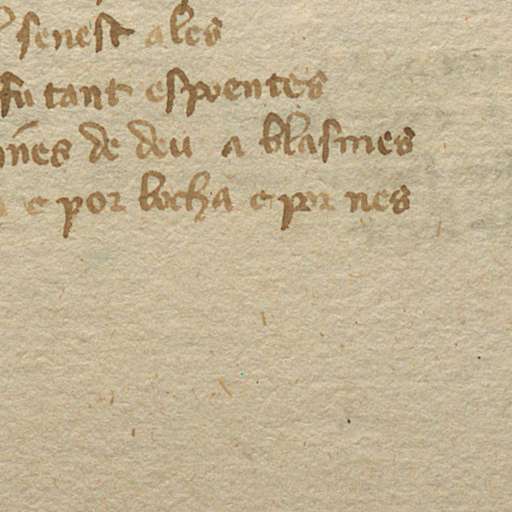 senest ales
fu tant espoentes
de deu a blasmes
e por bocha e por nes